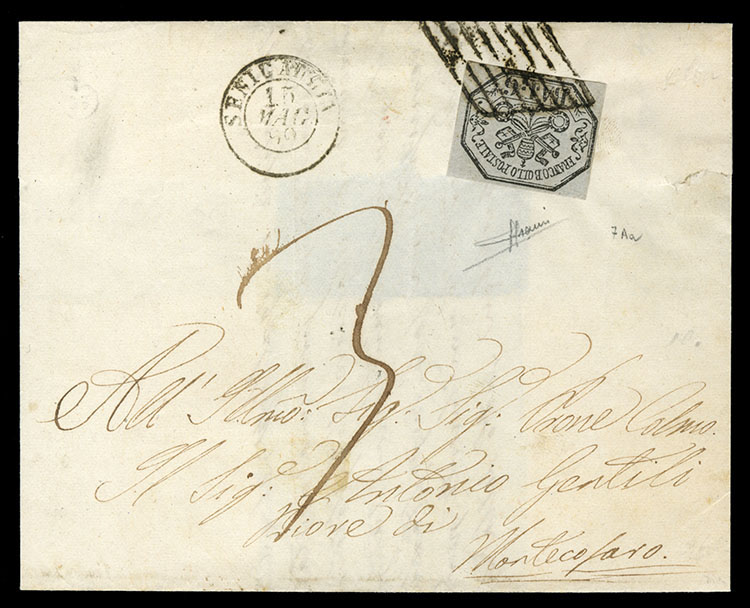 SENIGAGLIA
15
MAG
BAJ. 6.
FRANCO BOLLO POSTALE
7Aa
3
All' Illmo: Sig. Sig: Prone Colmo.
Il Sig: Antonio Gentili
Priore di
Montecosaro.